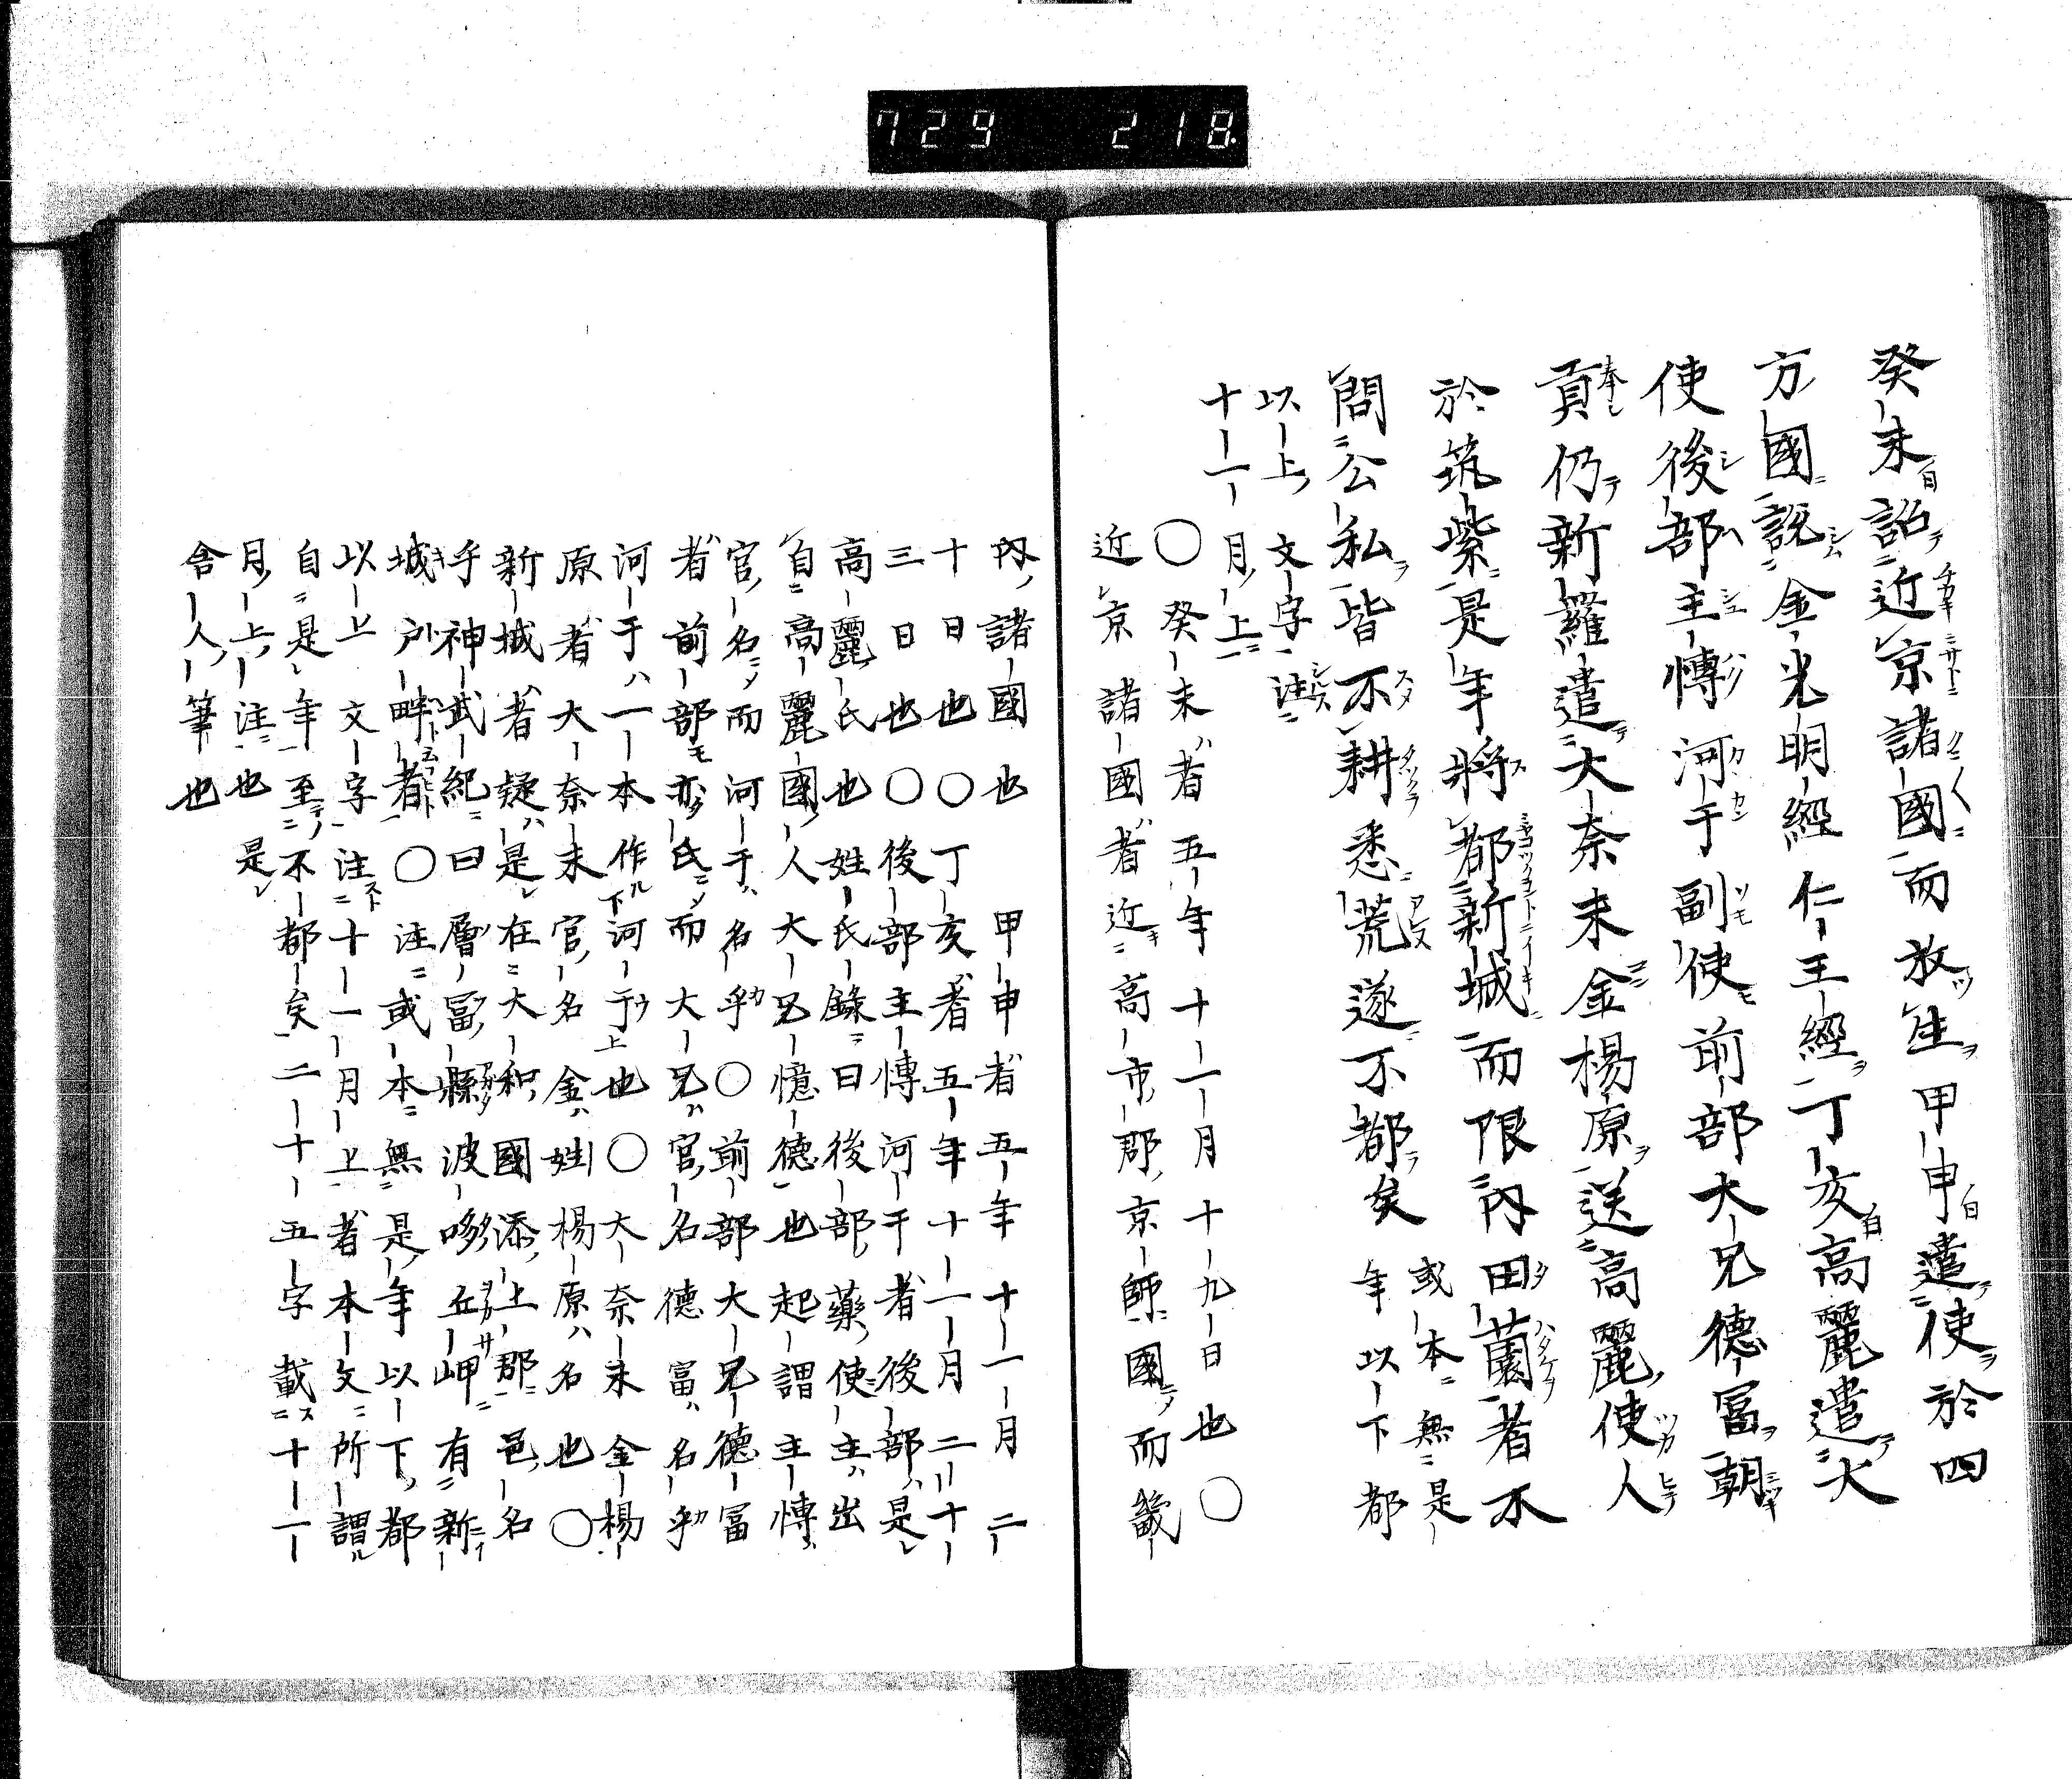 729 218.
癸未詔近京諸國而放生甲申遣使於四
方國說金光明經仁王經丁亥高麗遣大
使後部主博河于副使前部大兄德冨朝
貢仍新羅遣大奈末金楊原送高麗使人
於筑紫是年將都新城而限內田薗者不
問公私皆不耕悉荒遂不都矣 或本無是
年以下都
以上文字注
十一月上
○癸未者五年十一月十九日也○
近京諸國者近高市郡京師國而畿
內諸國也 甲申者五年十一月二
十日也○丁亥者五年十一月二十
三日也○後部主博河干者後部是
高麗氏也姓氏錄曰後部藥使主出
自高麗國人大兄憶德也起謂主博
官名而河于名乎○前部大兄德冨
者前部亦氏而大兄官名德冨名乎
河于一本作河于也○大奈末金楊
原者大奈末官名金姓楊原名也○
新城者疑是在大和國添上郡邑名
乎神武紀曰層冨縣波哆丘岬有新
城戶畔者○注或本無是年以下都
以上文字注十一月上者本文所謂
自是年至不都矣二十五字載十一
月上注也是
舍人筆也